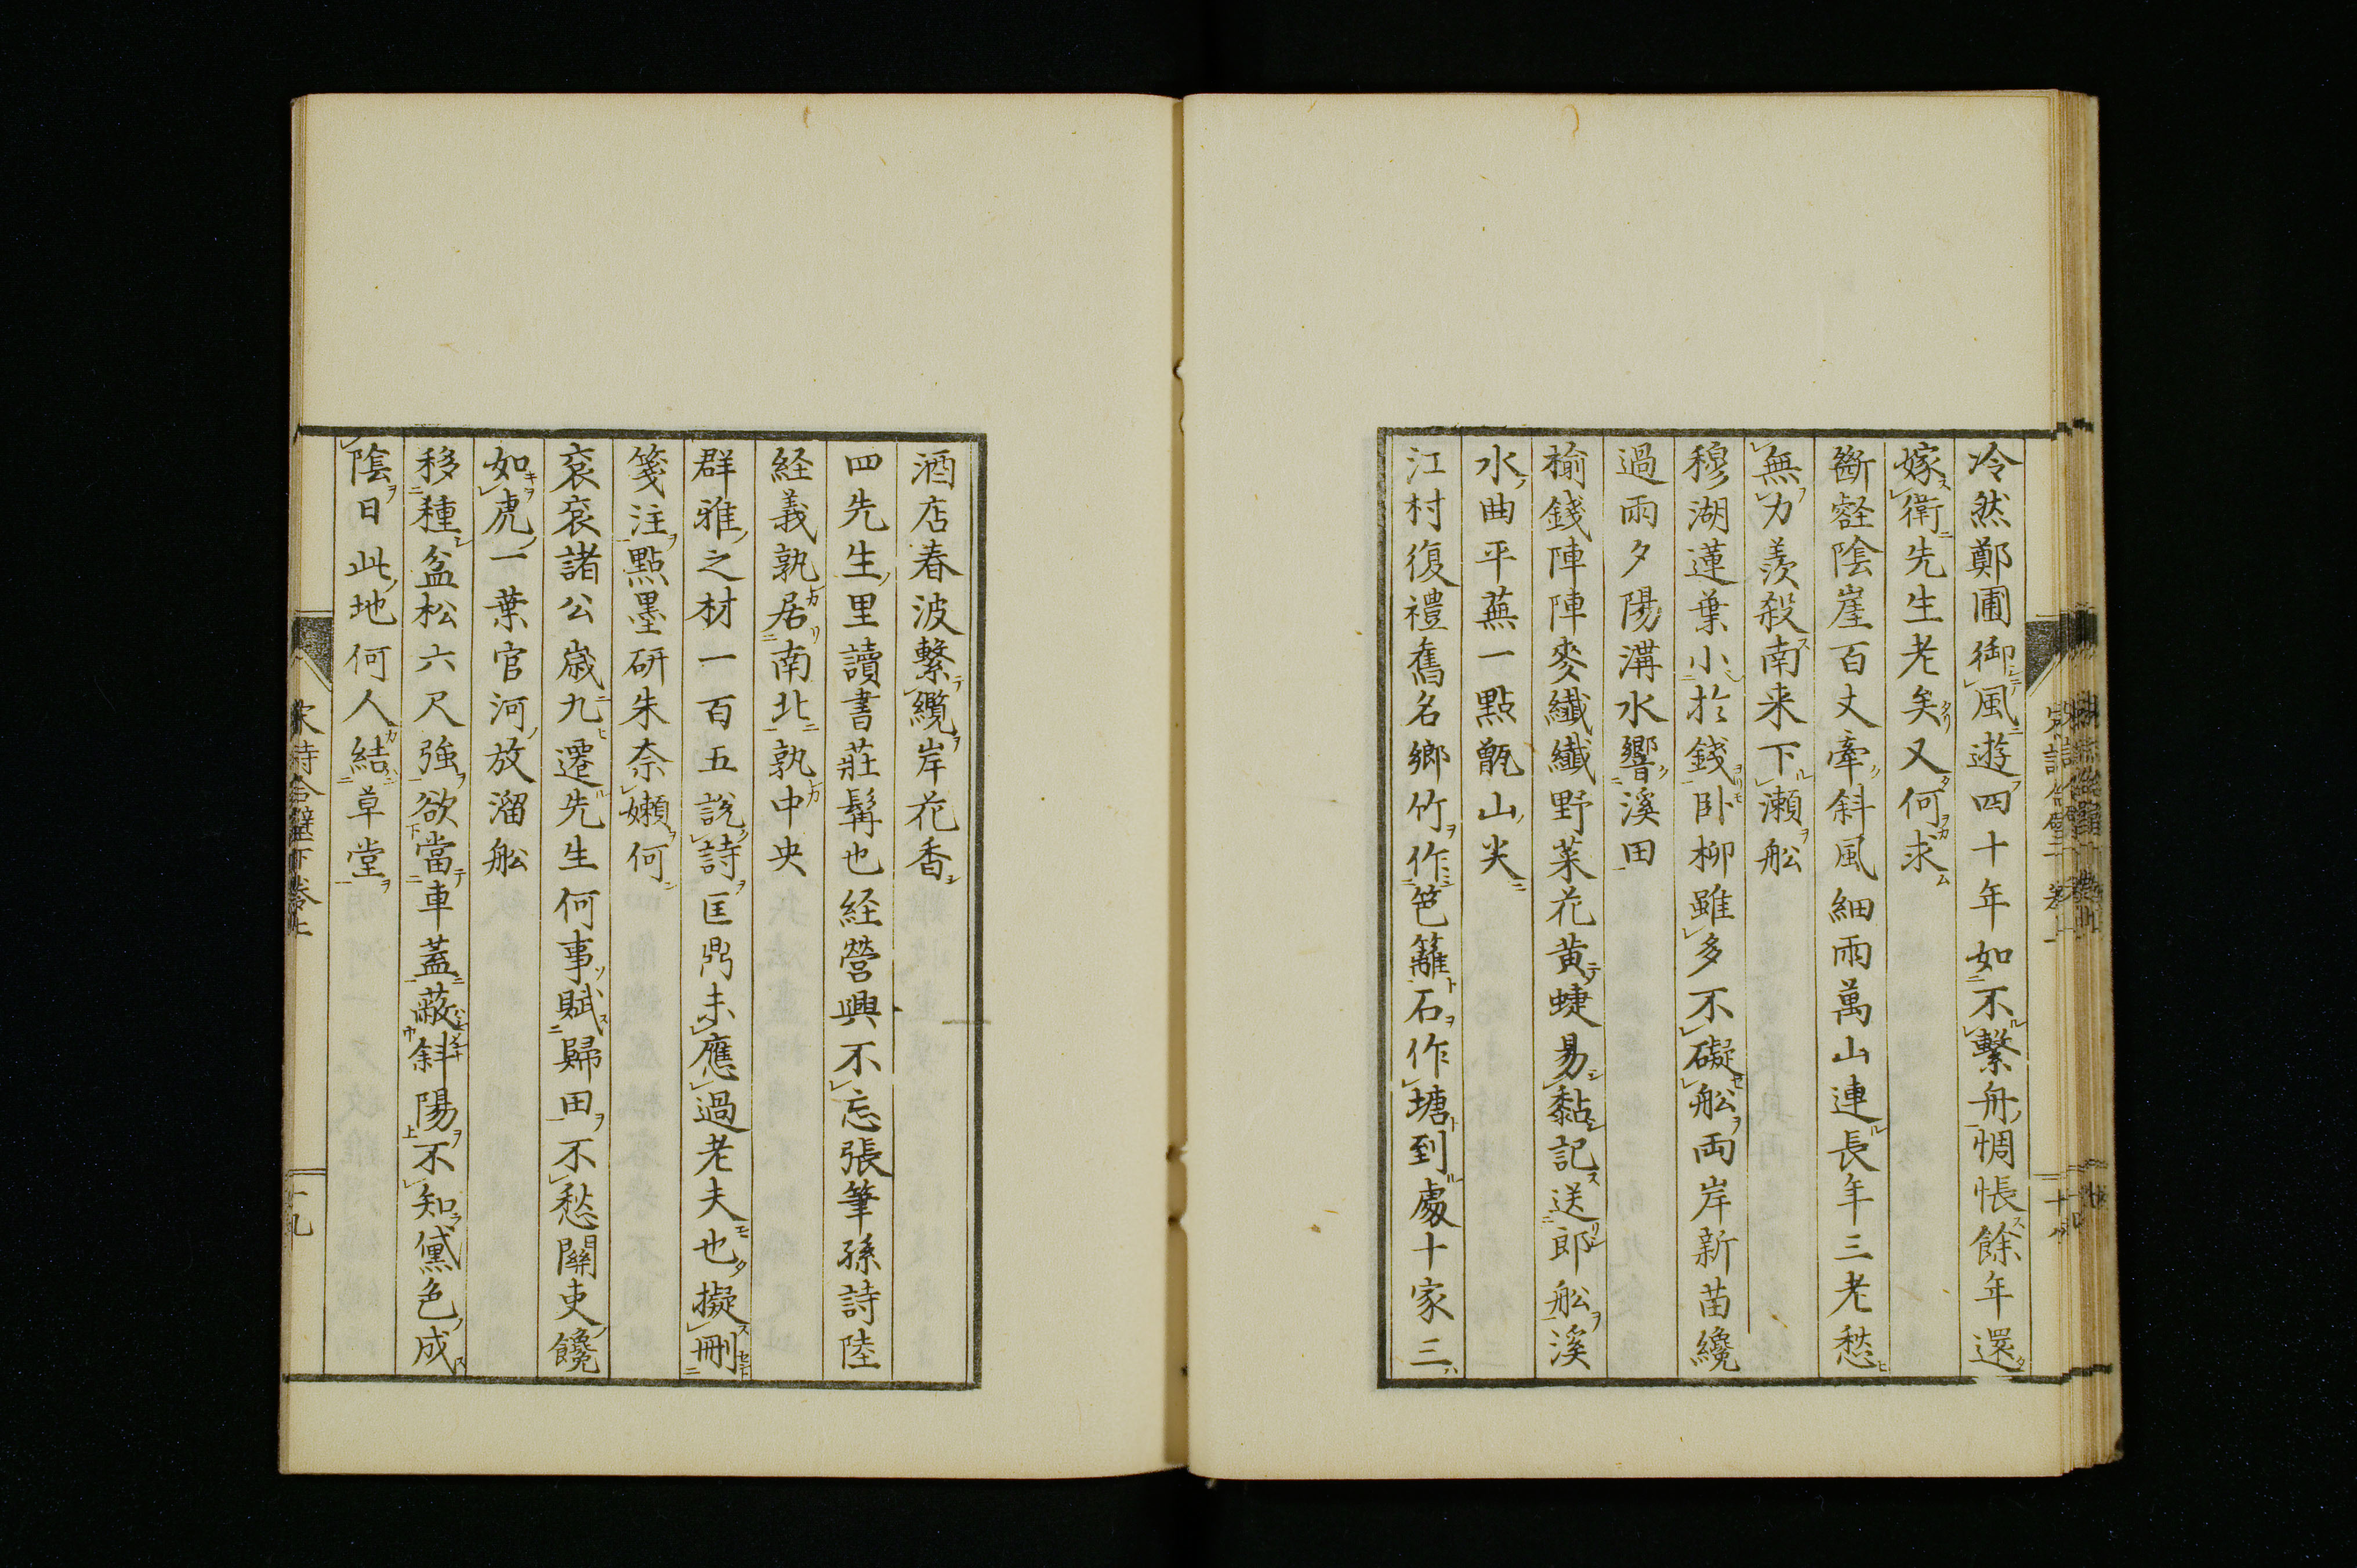 冷然鄭圃御風遊四十年如不繫舟惆悵餘年還
嫁衛先生老矣又何求
斷壑陰崖百丈牽斜風細雨萬山連長年三老愁
無力羨殺南来下瀬舩
穆湖蓮葉小於錢卧柳雖多不礙舩両岸新苗纔
過雨夕陽溝水響溪田
榆錢陣陣麥纖纖野菜花黄蜨易黏記送郎舩溪
水曲平蕪一點甑山尖
江村復禮舊名鄉竹作笆籬石作塘到處十家三
酒店春波繫纜岸花香
四先生里讀書莊髯也経營興不忘張筆孫詩陸
経義孰居南北孰中央
群雅之材一百五說詩匡鼎未應過老夫也擬刪
箋注點墨研朱奈嬾何
衮衮諸公歲九遷先生何事賦歸田不愁關吏饞
如虎一葉官河放溜舩
移種盆松六尺強欲當車蓋蔽斜陽不知黛色成
陰日此地何人結草堂
宋詩合璧下卷上
十九